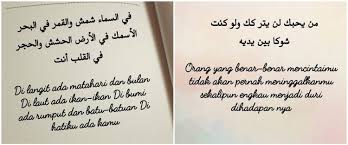 في السماء شمش والقمر في البحر
الأسمك في الأرض الحشش والحجر
في القلب أنت
Di langit ada matahari dan bulan
Di laut ada ikan-ikan Di bumi
ada rumput dan batu-batuan Di
hatiku ada kamu
من يحبك لن يتركك ولو كنت
شوكا بين يديه
Orang yang benar-benar mencintaimu
tidak akan pernak meninggalkanmu
sekalipun engkau menjadi duri
dihadapan nya